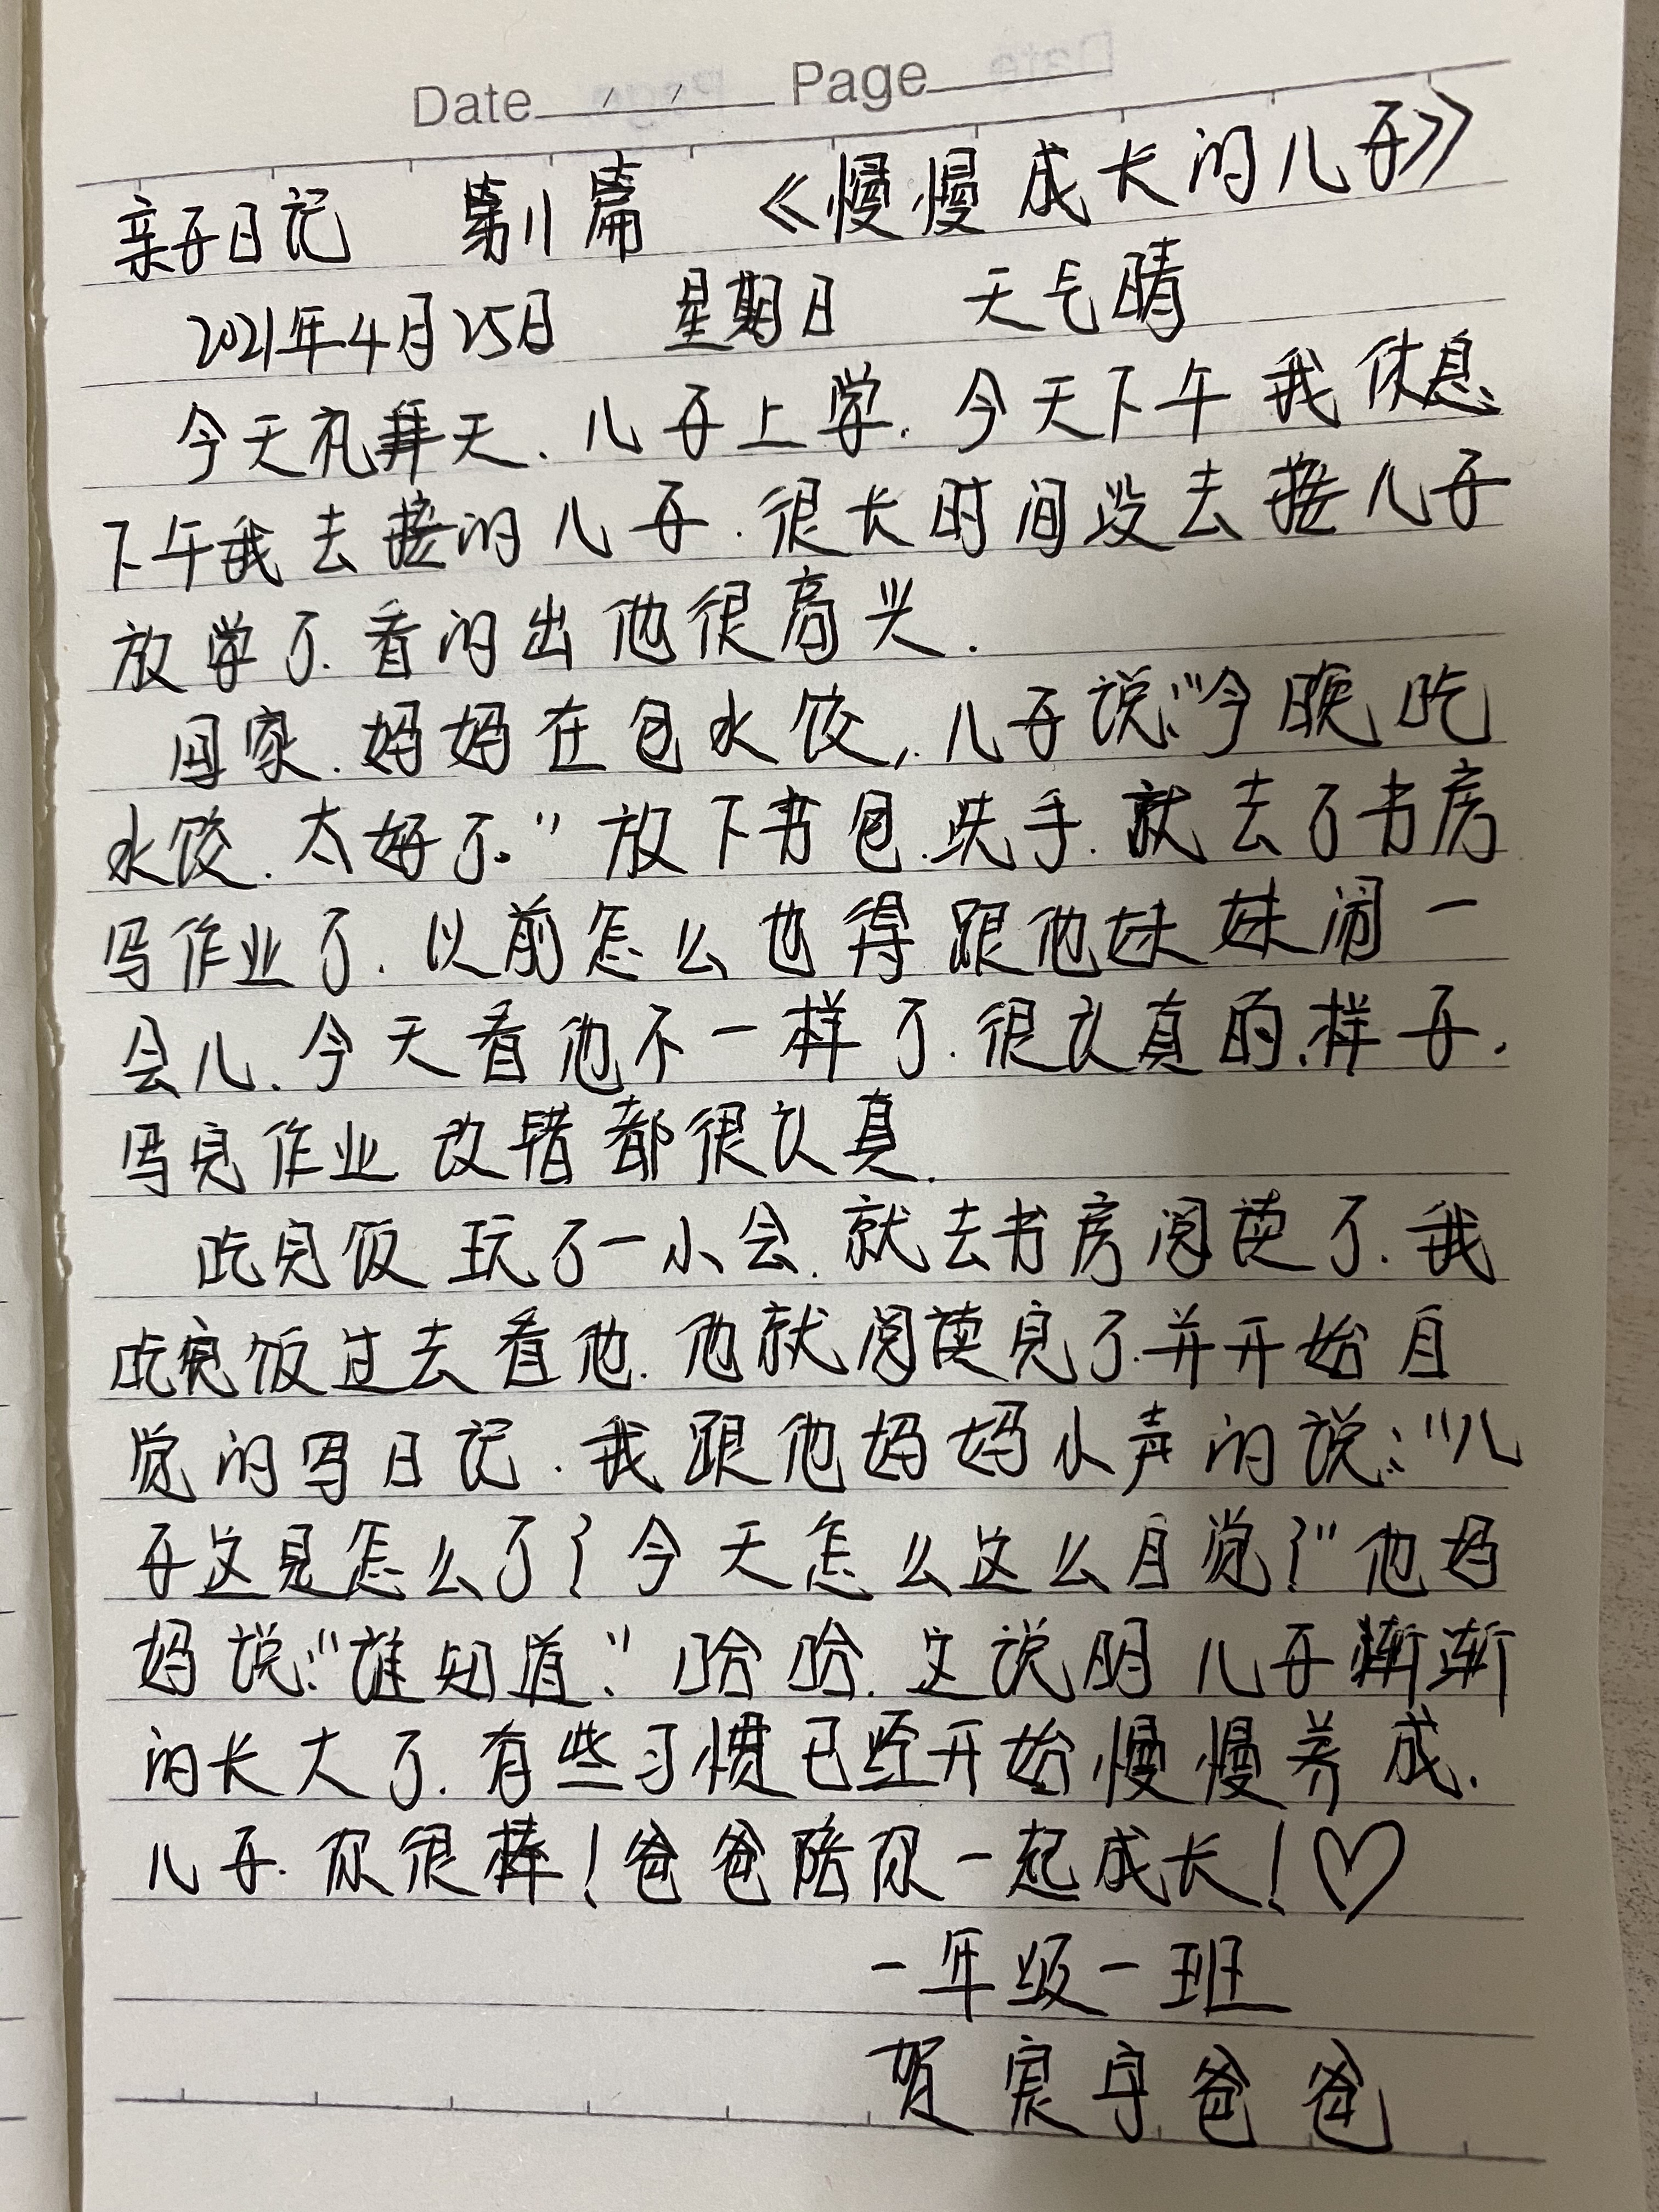 Date / / Page
亲子日记 第11篇 《慢慢成长的儿子》
2021年4月25日 星期日 天气晴
今天礼拜天.儿子上学.今天下午我休息、
下午我去接的儿子.很长时间没去接儿子
放学了.看的出他很高兴.
回家.妈妈在包水饺,.儿子说:“今晚吃
水饺.太好了。”放下书包.洗手.就去了书房
写作业了.以前怎么也得跟他妹妹闹一
会儿.今天看他不一样了.很认真的.样子.
写完作业改错都很认真.
吃完饭玩了一小会.就去书房阅读了.我
吃完饭过去看他.他就阅读完了.并开始自
觉的写日记.我跟他妈妈小声的说:“儿
子这是怎么了?今天怎么这么自觉?”他妈
妈说:“谁知道.”哈哈.这说明儿子渐渐
的长大了.有些习惯已经开始慢慢养成.
儿子.你很棒!爸爸陪你一起成长!♡
一年级一班
贺宸宇爸爸